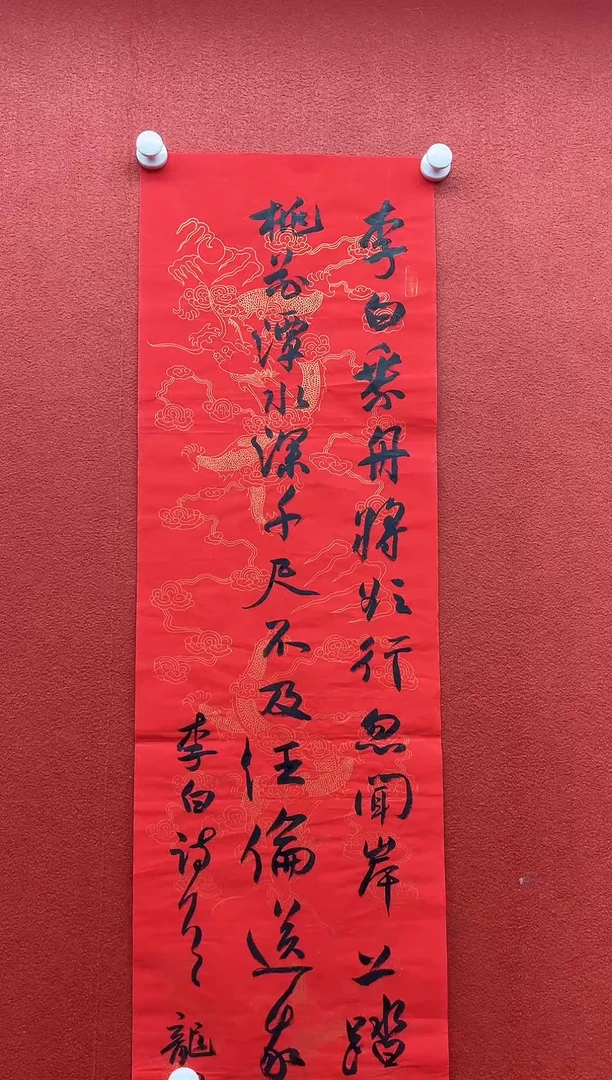 李白乘舟将欲行忽闻岸上踏
桃花潭水深千尺不及汪倫送我
李白诗
龍